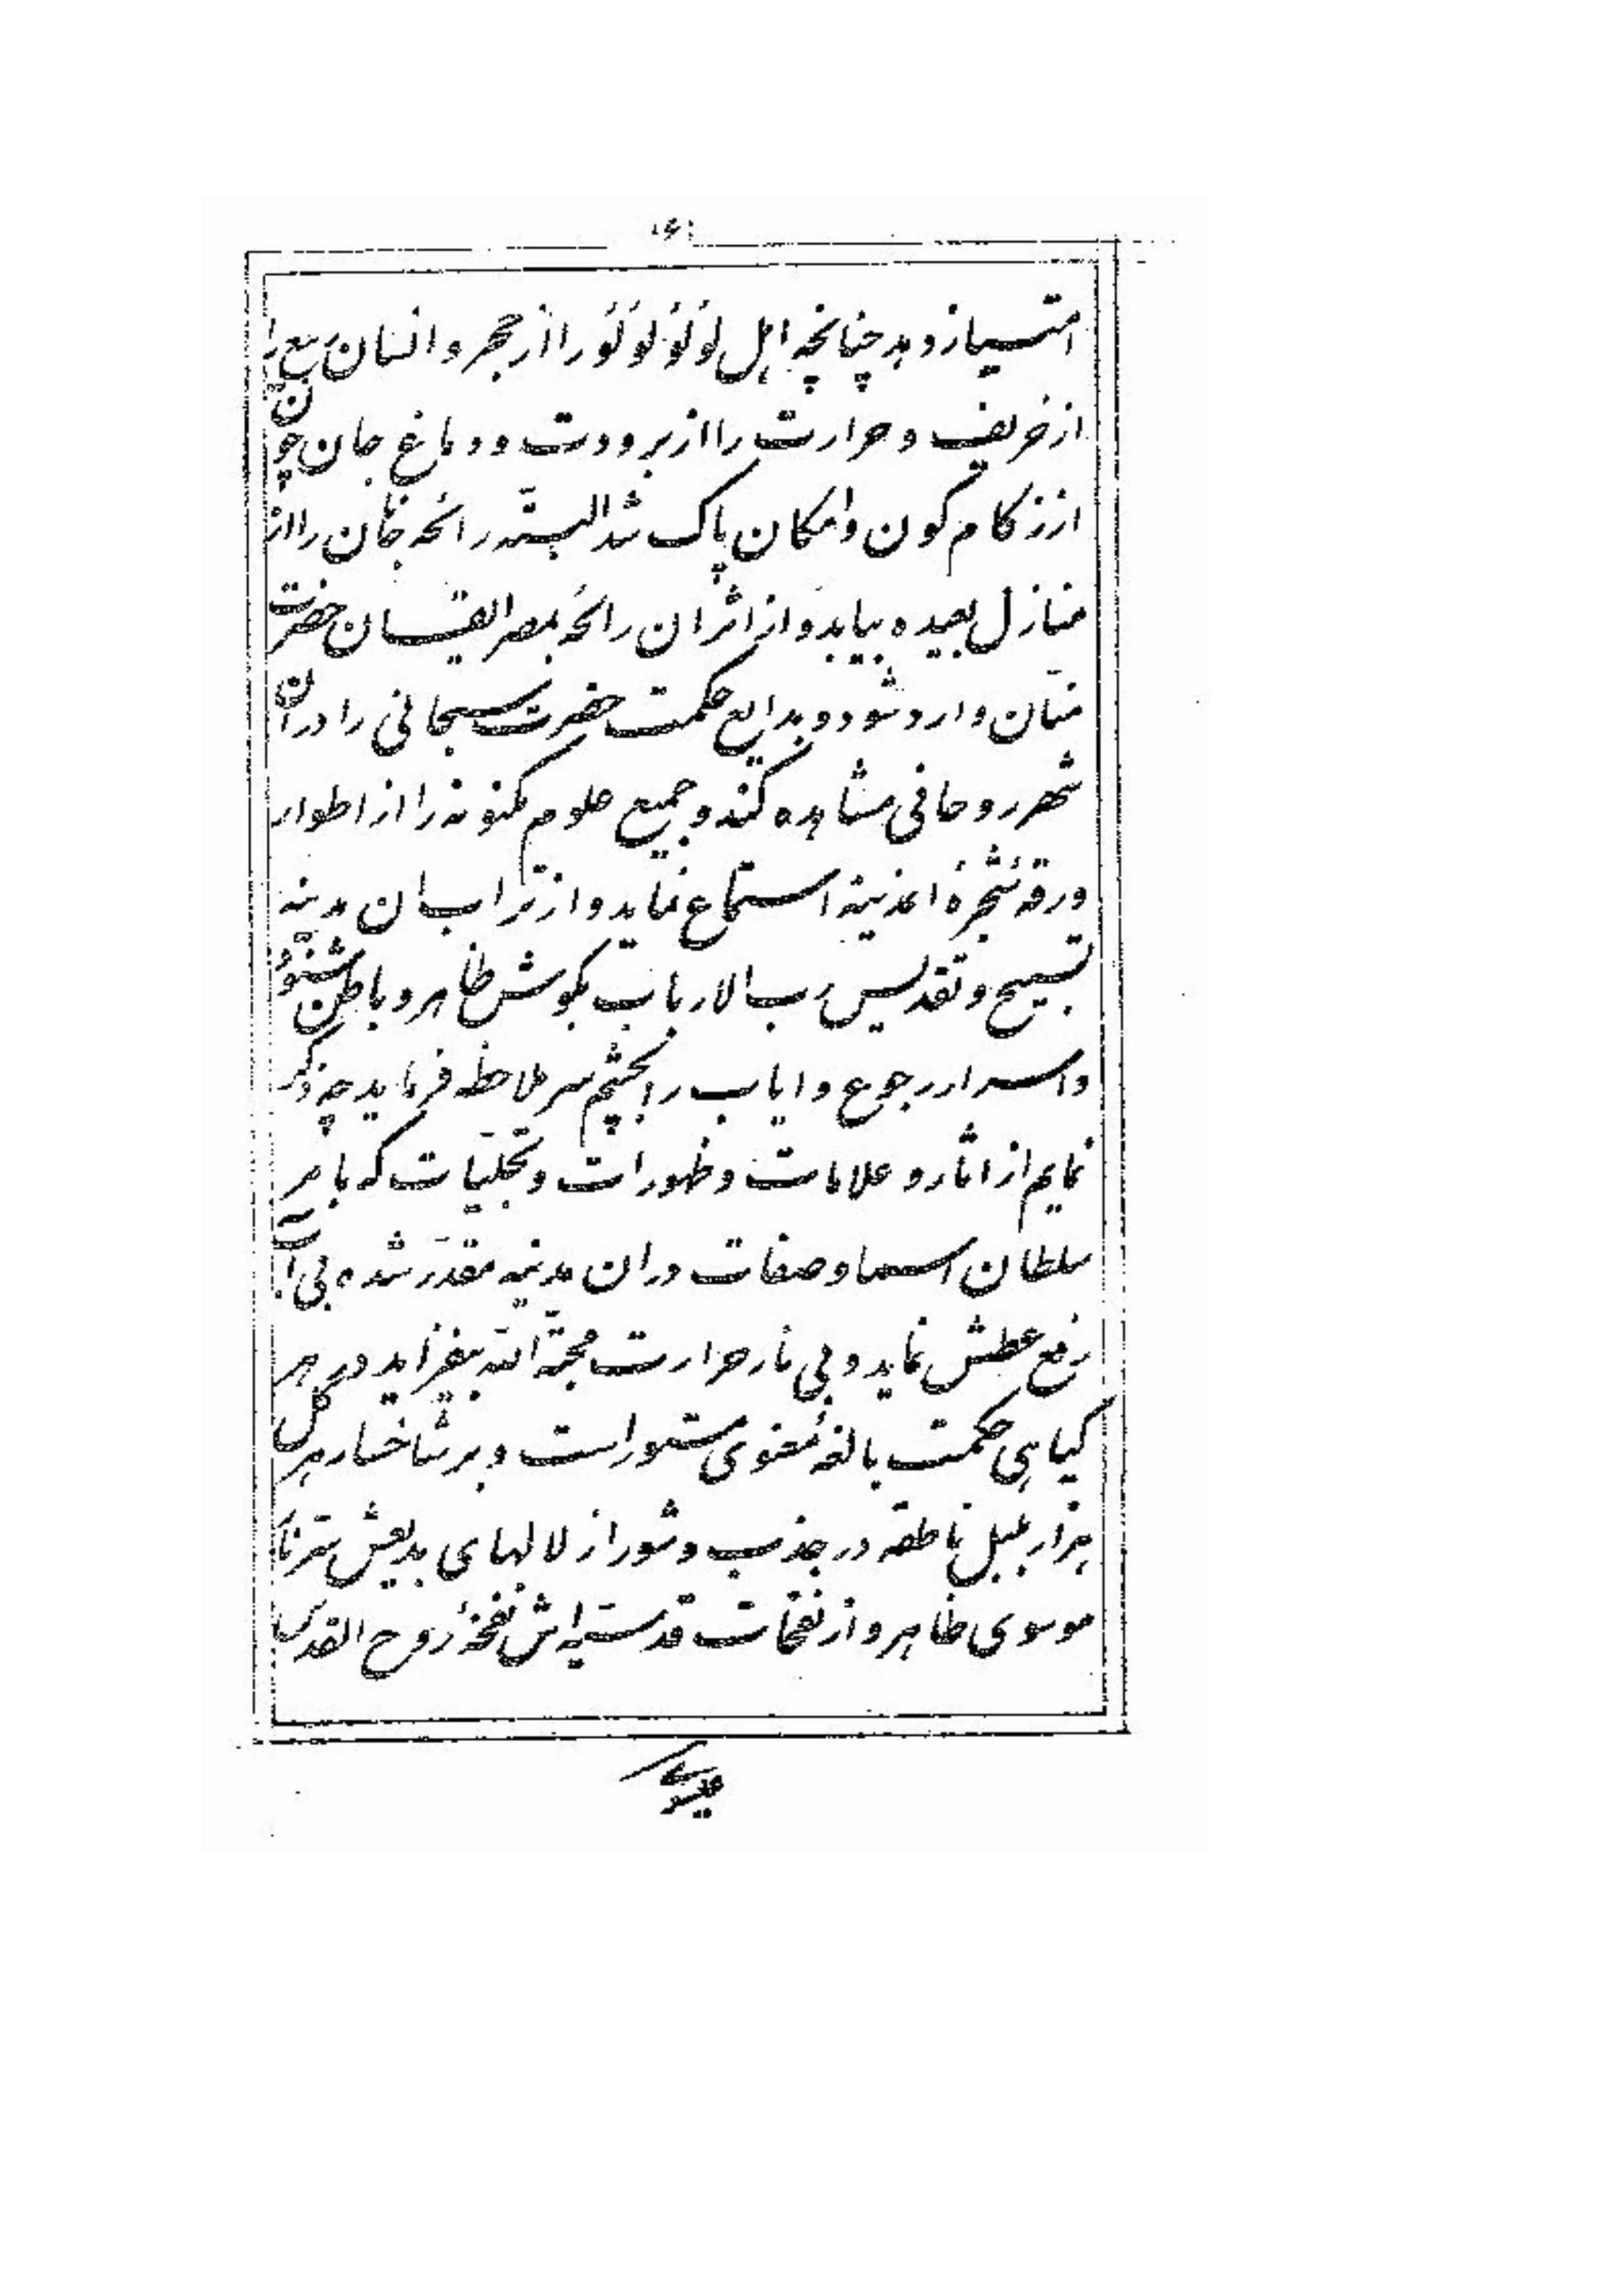 ۱۶۱
امتیاز دهد چنانچه اهل لؤلؤ لؤلؤ را از حجر و انسان ربیع را
از خریف و حرارت را از برودت و دماغ جان چون
از زکام کون و امکان پاک شد البتّه رائحه جانان را از
منازل بعیده بیابد و از اثر ان رائحه بمصر ایقان حضرت
منّان وارد شود و بدایع حکمت حضرت سبحانی را در ان
شهر روحانی مشاهده کند و جمیع علوم مکنونه را از اطوار
ورقهٔ شجرهٔ ان مدینه استماع نماید و از تراب ان مدینه
تسبیح و تقدیس رب الارباب بگوش ظاهر و باطن شنود
و اسرار رجوع و ایاب را بچشم سر ملاحظه فرماید چه ذکر
نمایم از اثار و علامات و ظهورات و تجلّیات که بامر
سلطان اسما و صفات در ان مدینه مقدّر شده بی آب
رفع عطش نماید و بی نار حرارت محبّة اللّه بیفزاید در هر
گیاهی حکمت بالغهٔ معنوی مستور است و بر شاخسار هر گل
هزار بلبل ناطقه در جذب و شور از لالهای بدیعش سرّ نار
موسوی ظاهر و از نفحات قدسیّه‌اش نفخهٔ روح القدس
عیسوی